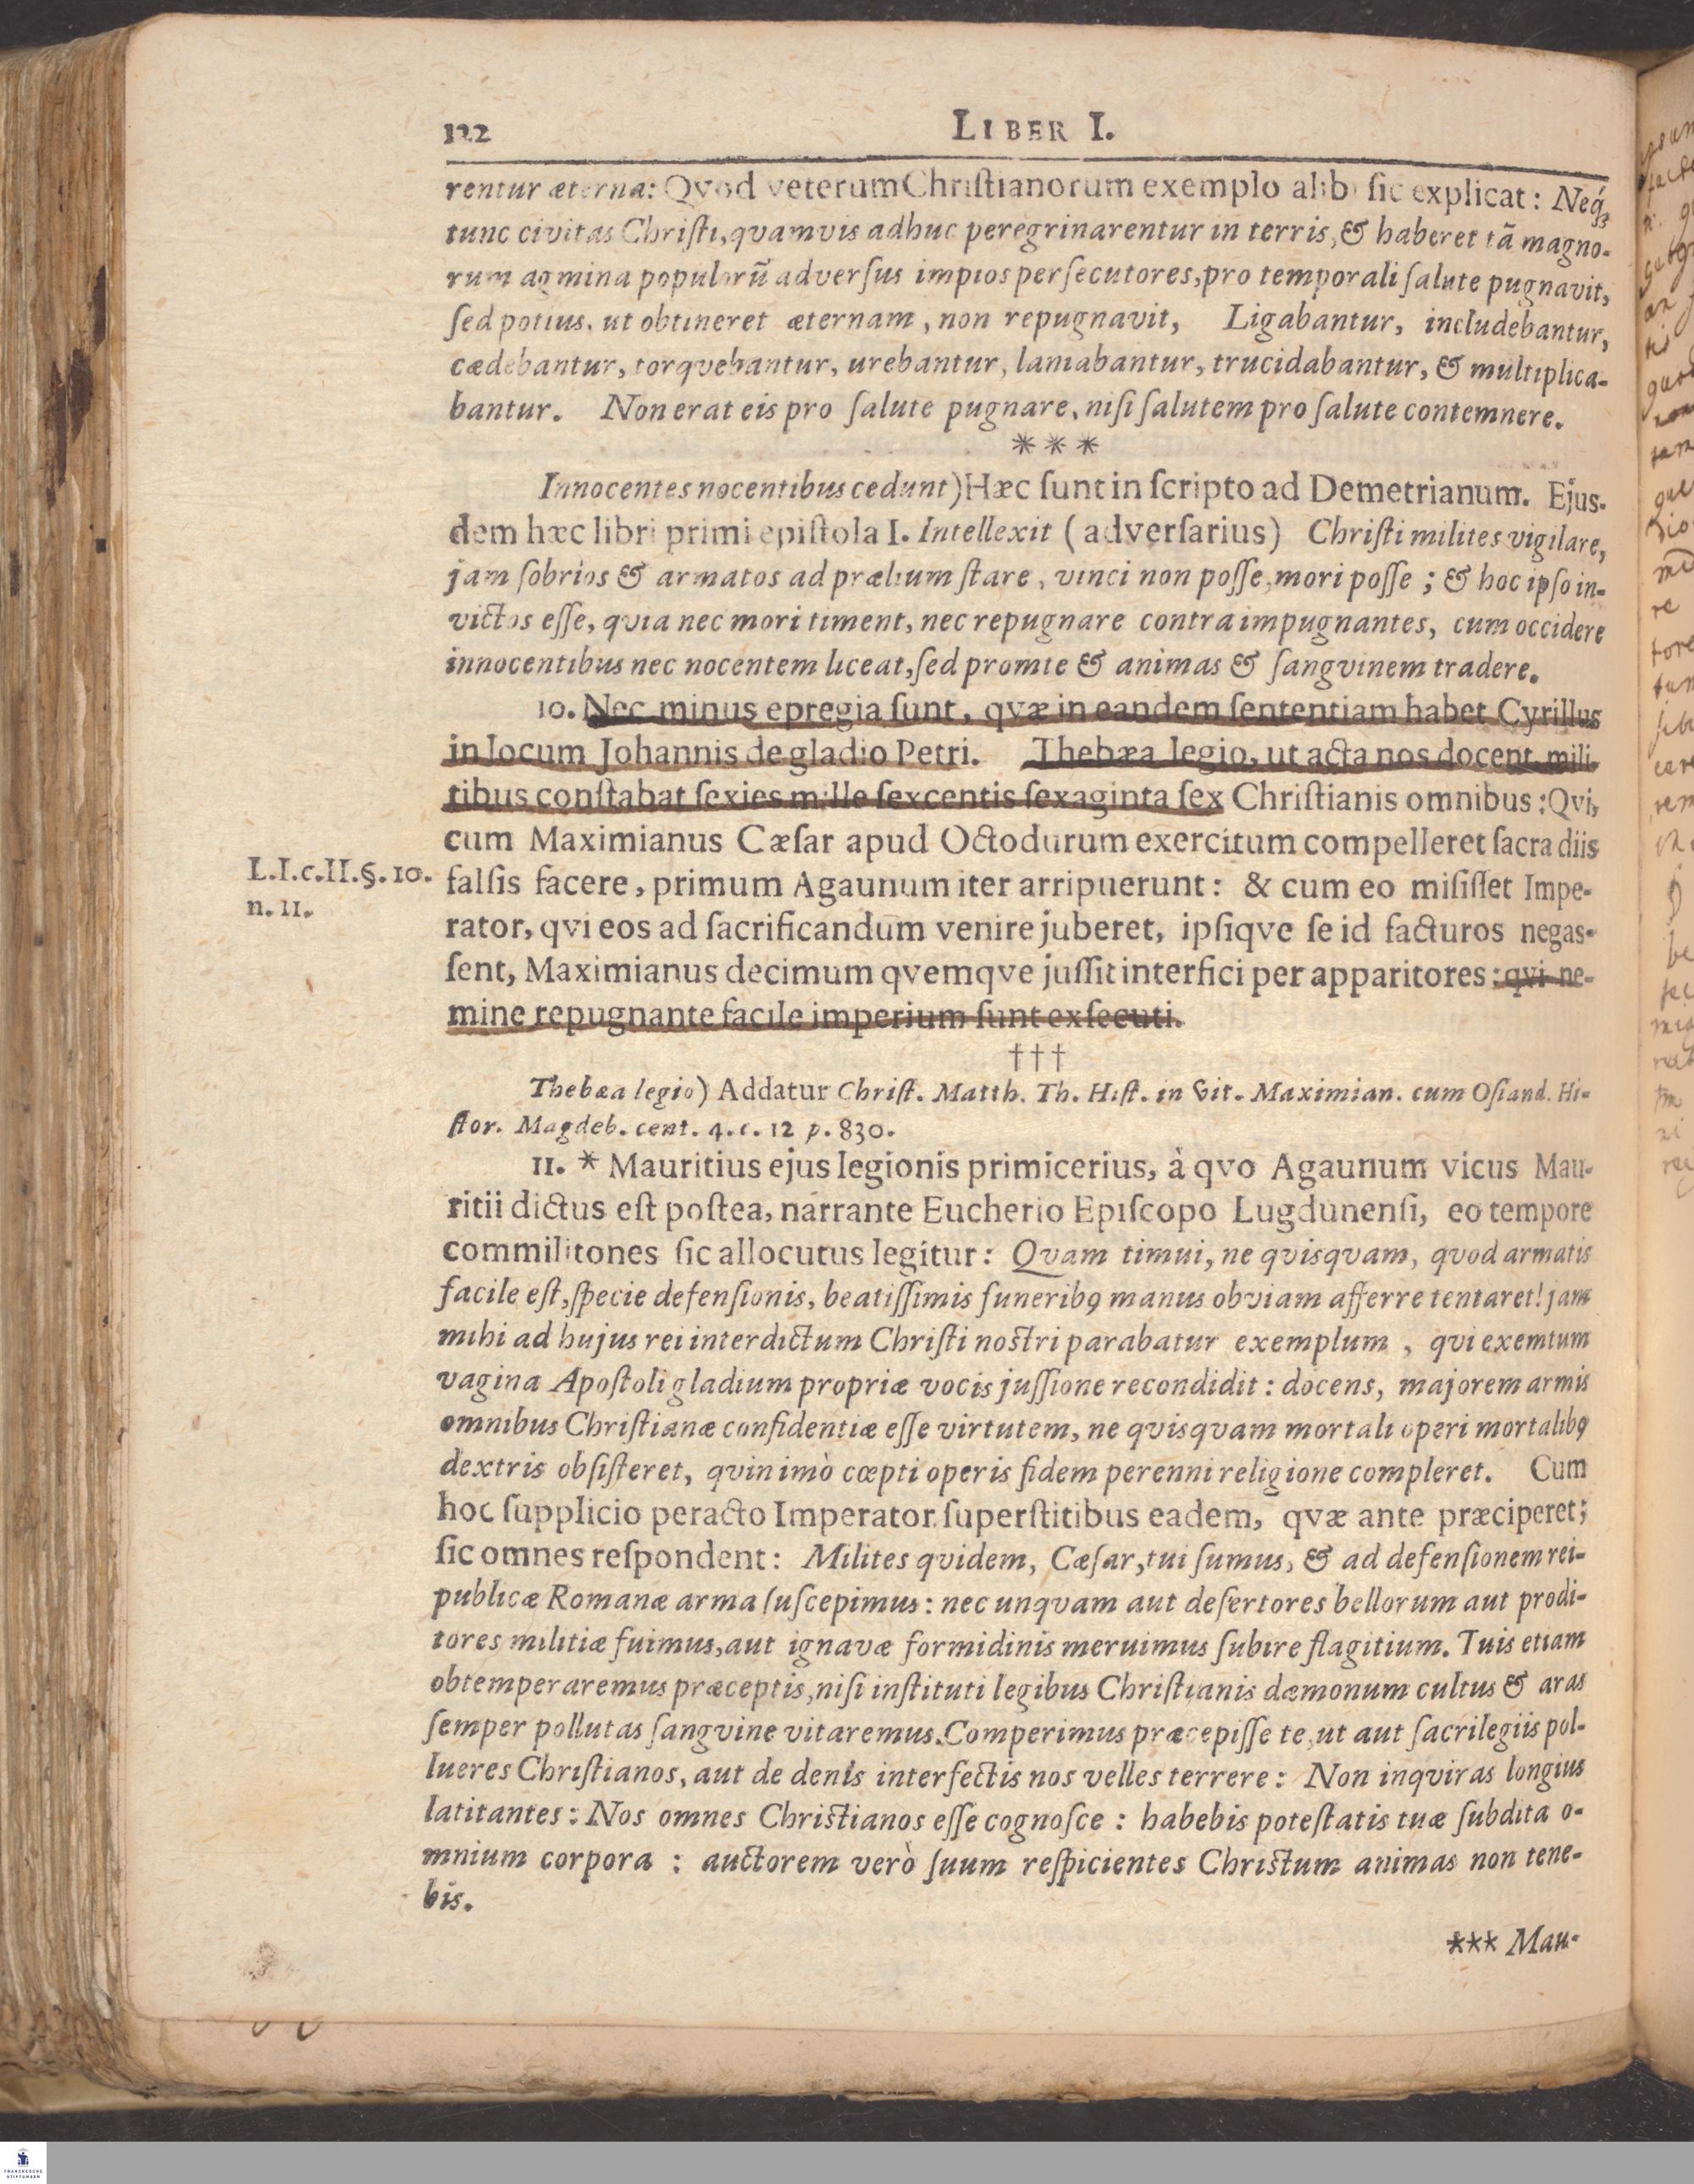 122 LIBER I.
rentur æterna: Qvod veterum Chriſtianorum exemplo alibi ſic explicat: Neq́;
tunc civitas Chriſti, quamvis adhuc peregrinarentur in terris, & haberet tã magno-
rum agmina populorũ adverſus impios perſecutores, pro temporali ſalute pugnavit,
ſed potius, ut obtineret æternam, non repugnavit, Ligabantur, includebantur,
cædebantur, torquebantur, urebantur, laniabantur, trucidabantur, & multiplica-
bantur. Non erat eis pro ſalute pugnare, niſi ſalutem pro ſalute contemnere.
***
Innocentes nocentibus cedunt) Hæc ſunt in ſcripto ad Demetrianum. Ejus-
dem hæc libri primi epiſtola I. Intellexit (adverſarius) Chriſti milites vigilare,
jam ſobrios & armatos ad prælium ſtare, vinci non poſſe, mori poſſe; & hoc ipſo in-
victos eſſe, quia nec mori timent, nec repugnare contra impugnantes, cum occidere
innocentibus nec nocentem liceat, ſed promte & animas & ſangvinem tradere.
10. Nec minus epregia ſunt, qvæ in eandem ſententiam habet Cyrillus
in locum Johannis de gladio Petri. Thebæa legio, ut acta nos docent, mili-
tibus conſtabat ſexies mille ſexcentis ſexaginta ſex Chriſtianis omnibus: Qvi,
cum Maximianus Cæſar apud Octodurum exercitum compelleret ſacra diis
L.I.c.II.§.10.
n.11.
falſis facere, primum Agaunum iter arripuerunt: & cum eo miſiſſet Impe-
rator, qvi eos ad ſacrificandum venire juberet, ipſiqve ſe id facturos negas-
ſent, Maximianus decimum qvemqve juſſit interfici per apparitores: qvi ne-
mine repugnante facile imperium ſunt exſecuti.
†††
Thebæa legio) Addatur Chriſt. Matth. Th. Hiſt. in Vit. Maximian. cum Oſiand. Hi-
ſtor. Magdeb. cent. 4. c. 12 p. 830.
11. * Mauritius ejus legionis primicerius, à qvo Agaunum vicus Mau-
ritii dictus eſt poſtea, narrante Eucherio Epiſcopo Lugdunenſi, eo tempore
commilitones ſic allocutus legitur: Qvam timui, ne qvisqvam, quod armatis
facile eſt, ſpecie defenſionis, beatiſſimis funerib9 manus obviam afferre tentaret! jam
mihi ad hujus rei interdictum Chriſti noſtri parabatur exemplum, qui exemtum
vagina Apoſtoli gladium propriæ vocis juſſione recondidit: docens, majorem armis
omnibus Chriſtianæ confidentiæ eſſe virtutem, ne quisquam mortali operi mortalib9
dextris obſiſteret, qvin imò cœpti operis fidem perenni religione compleret. Cum
hoc ſupplicio peracto Imperator ſuperſtitibus eadem, qvæ ante præciperet;
ſic omnes reſpondent: Milites quidem, Cæſar, tui ſumus, & ad defenſionem rei-
publicæ Romanæ arma ſuſcepimus: nec unqvam aut deſertores bellorum aut prodi-
tores militiæ fuimus, aut ignavæ formidinis meruimus ſubire flagitium. Tuis etiam
obtemperaremus præceptis, niſi inſtituti legibus Chriſtianis dæmonum cultus & aras
ſemper pollutas ſangvine vitaremus. Comperimus præcepiſſe te, ut aut ſacrilegiis pol-
lueres Chriſtianos, aut de denis interfectis nos velles terrere: Non inqviras longius
latitantes: Nos omnes Chriſtianos eſſe cognoſce: habebis poteſtatis tuæ ſubdita o-
mnium corpora: auctorem verò ſuum reſpicientes Chriſtum animas non tene-
bis.
*** Mau-
FRANCKESCHE
STIFTUNGEN